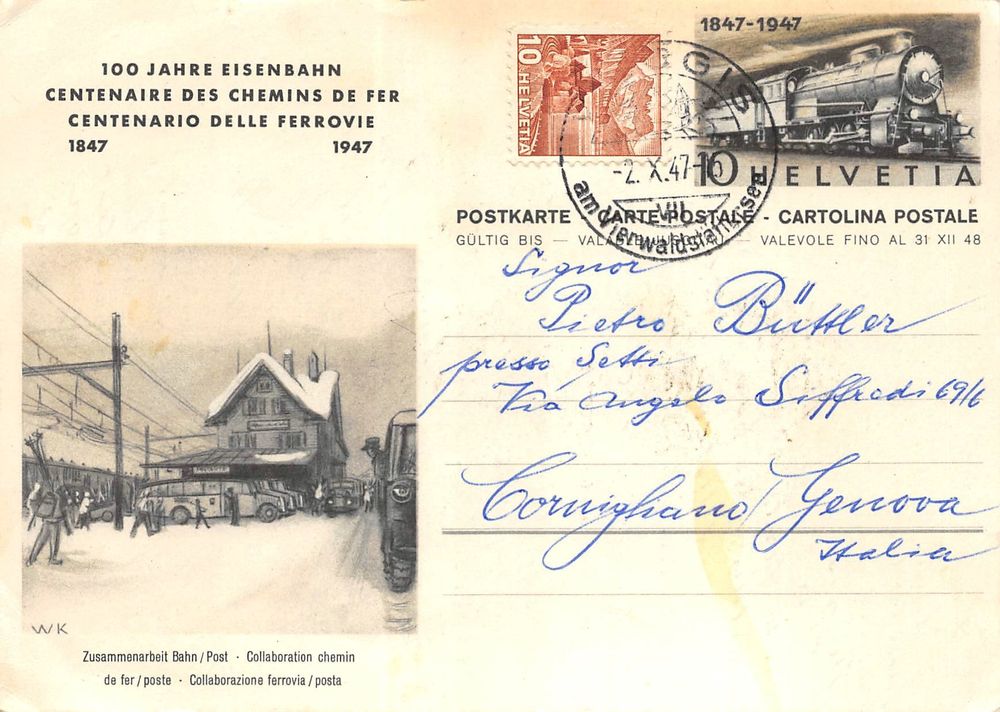 100 JAHRE EISENBAHN
CENTENAIRE DES CHEMINS DE FER
CENTENARIO DELLE FERROVIE
1847 1947
10 HELVETIA
1847-1947
10 HELVETIA
-2. X. 47-16
VII
am Vierwaldstättersee
POSTKARTE - CARTE POSTALE - CARTOLINA POSTALE
GÜLTIG BIS — VALABLE JUSQU'AU — VALEVOLE FINO AL 31 XII 48
Signor
Pietro Büttler
presso Setti
Via Angelo Siffredi 69/6
Cornighano / Genova
Italia
WK
Zusammenarbeit Bahn / Post · Collaboration chemin
de fer / poste · Collaborazione ferrovia / posta